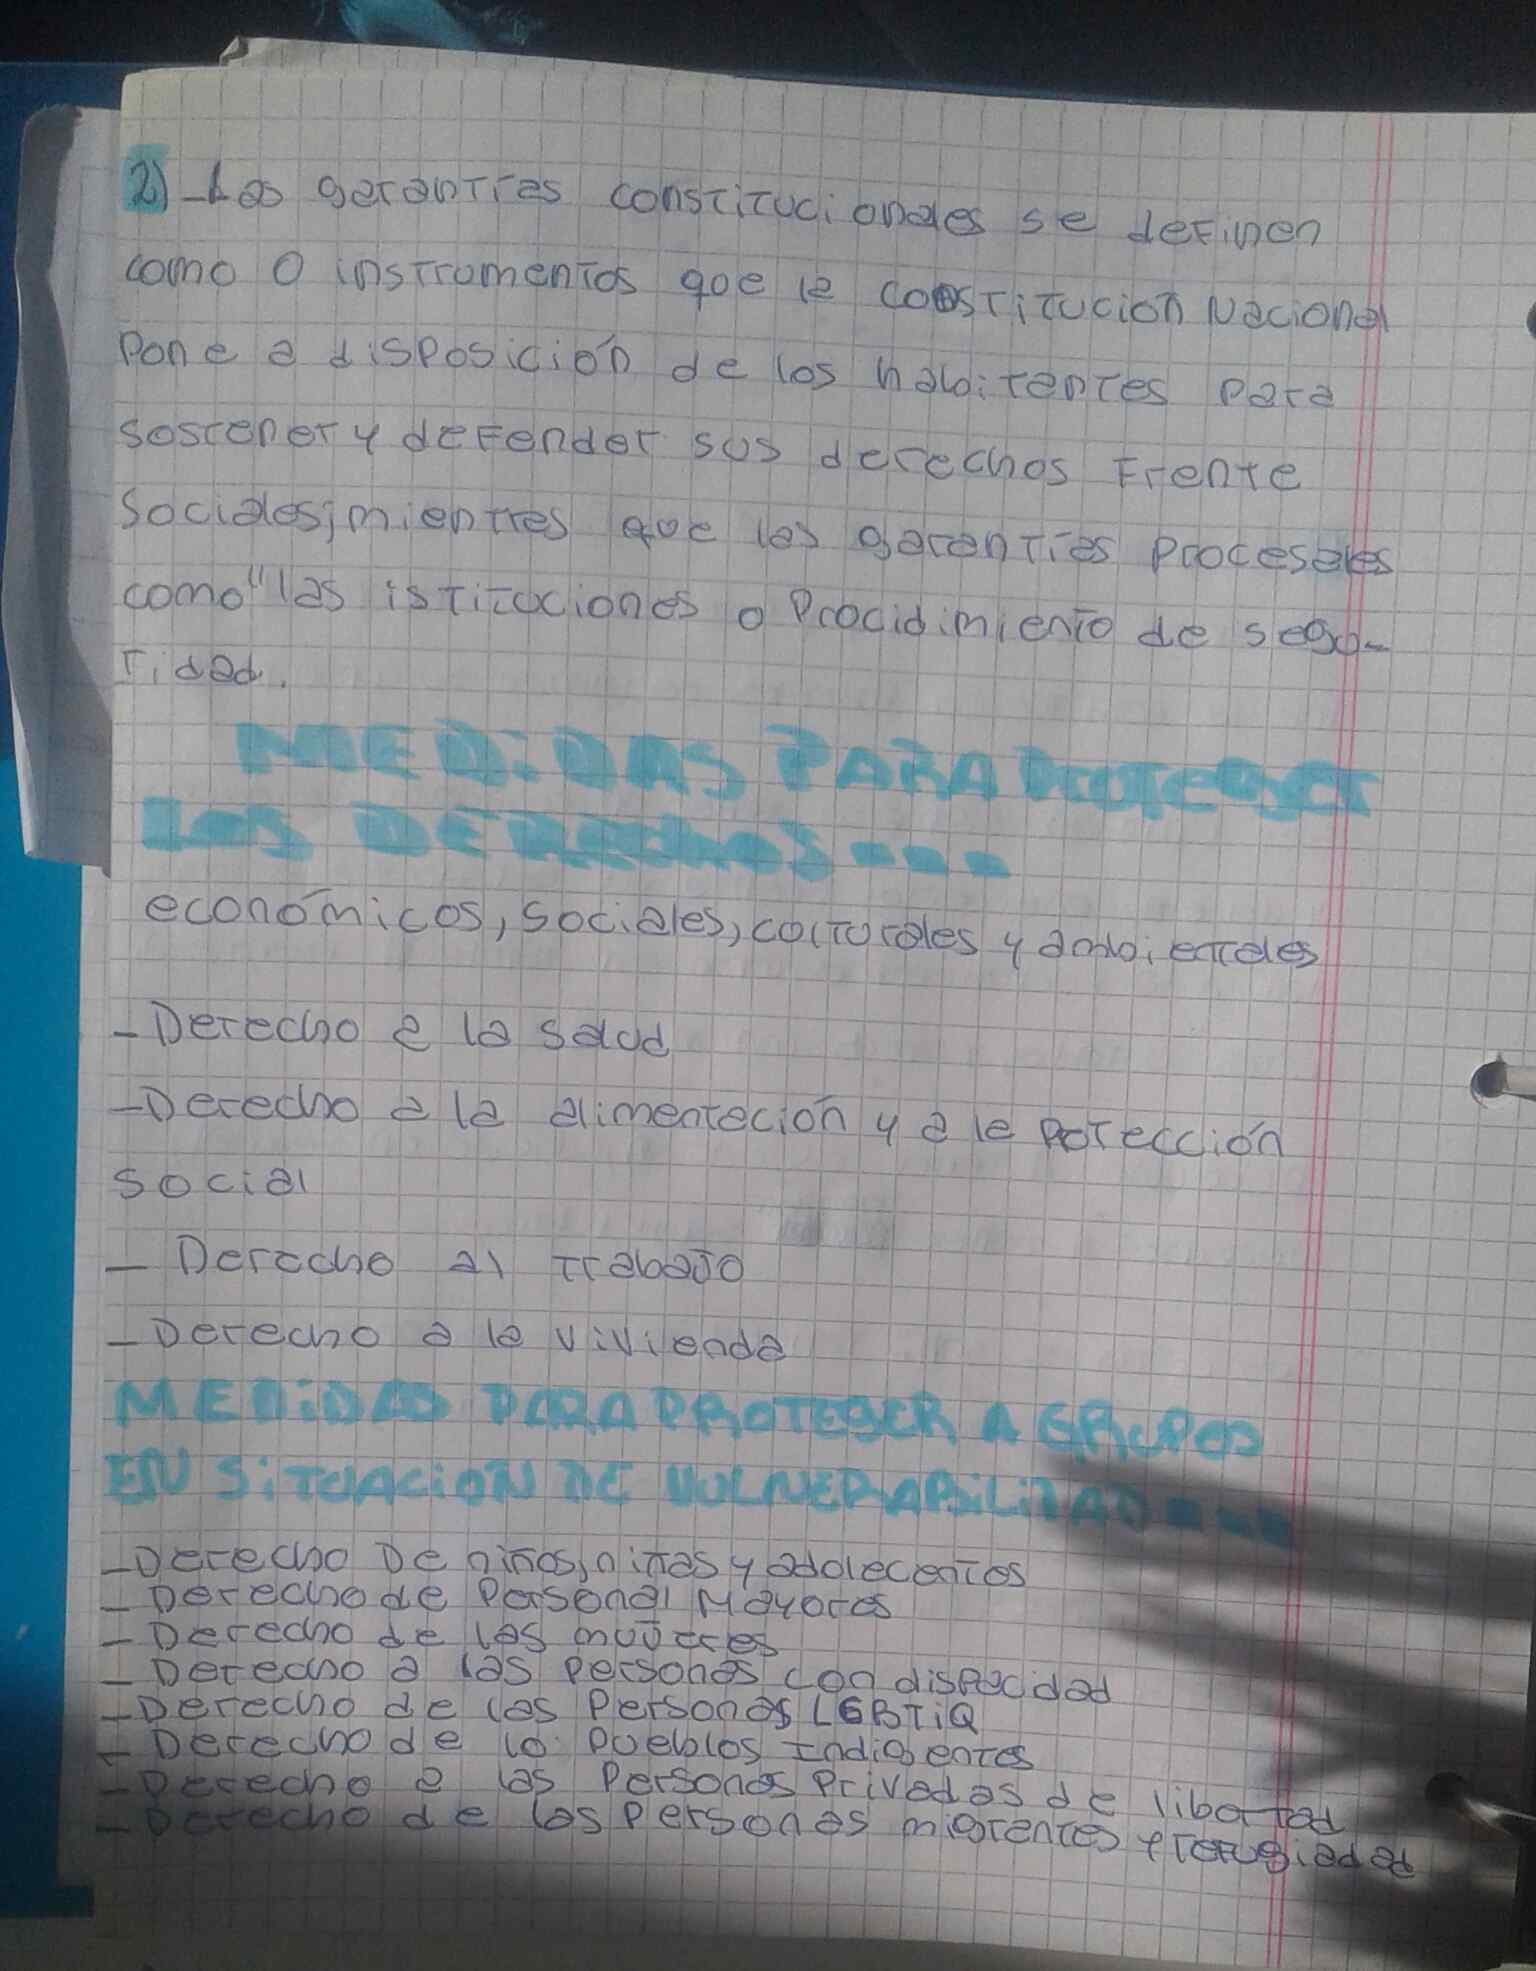 2)-Las garantías constitucionales se definen
como o instrumentos que la costitución Nacional
Pone a disposición de los habitantes para
sostener y defender sus derechos Frente
Sociales; mientres que las garantías Procesales
como "las istituciones o Procidimiento de segu-
ridad.
MEDiDAS PARA PROTEGER
Los DERECHOS...
económicos, sociales, culturales y ambientales
-Derecho a la salud
-Derecho a la alimentación y a la Protección
social
- Derecho al trabajo
-Derecho a la vivienda
MEDiDAS PARA PROTEGER A GRUPOS
EN SiTUACiON DE VULNERABiLiDAD...
-Derecho De niños, niñas y adolecentes
-Derecho de Personal Mayores
-Derecho de las mujeres
-Derecho a las Personas con dispacidad
-Derecho de las Personas LGBTiQ
-Derecho de lo Pueblos Indigentes
-Derecho a las Personas Privadas de libertad
-Derecho de las Personas migrantes y refugiadad